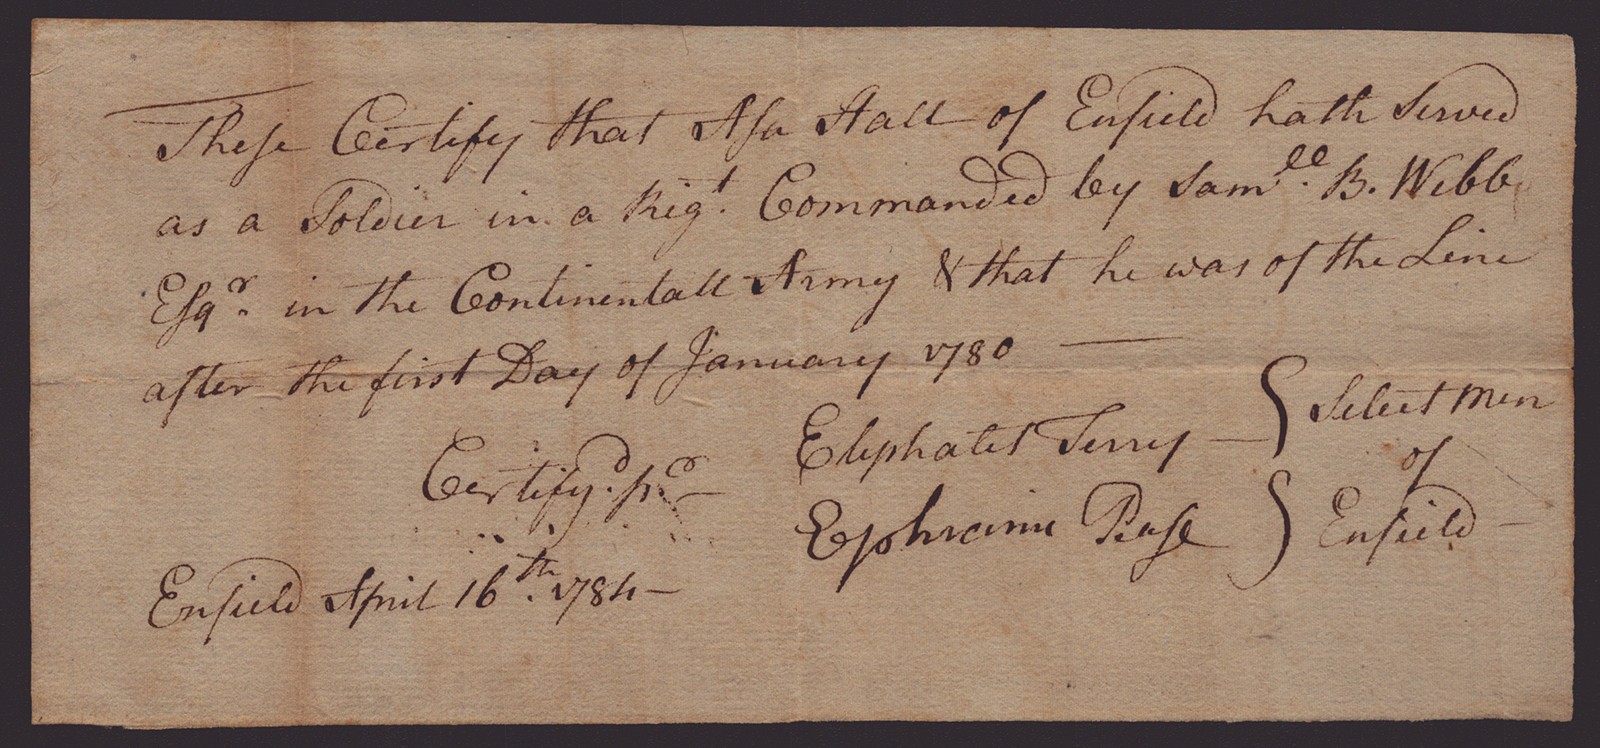 These Certify that Asa Hall of Enfield hath Served
as a Soldier in a Rigt. Commanded by Samll. B. Webb
Esqr. in the Continentall Army & that he was of the Line
after the first Day of January 1780 —
Eliphalet Terry — } Select Men
Certifyd. pr — of
Ephraim Pease } Enfield —
Enfield April 16th. 1784 —